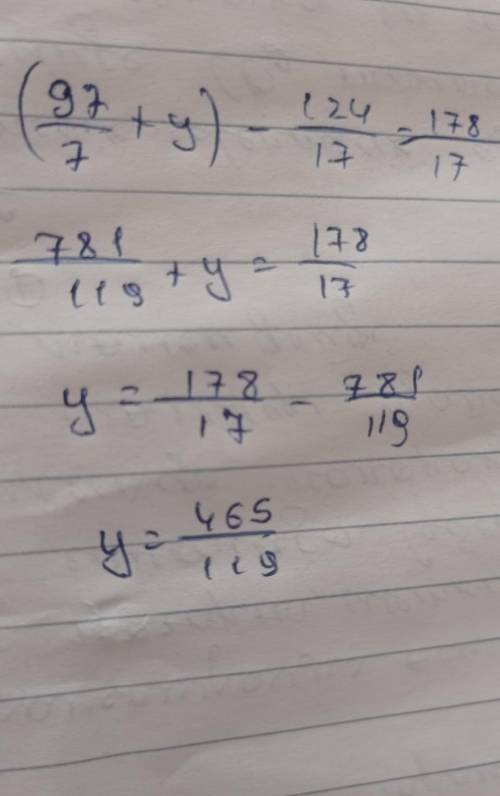 (97/7 + y) - 124/17 = 178/17
781/119 + y = 178/17
y = 178/17 - 781/119
y = 465/119